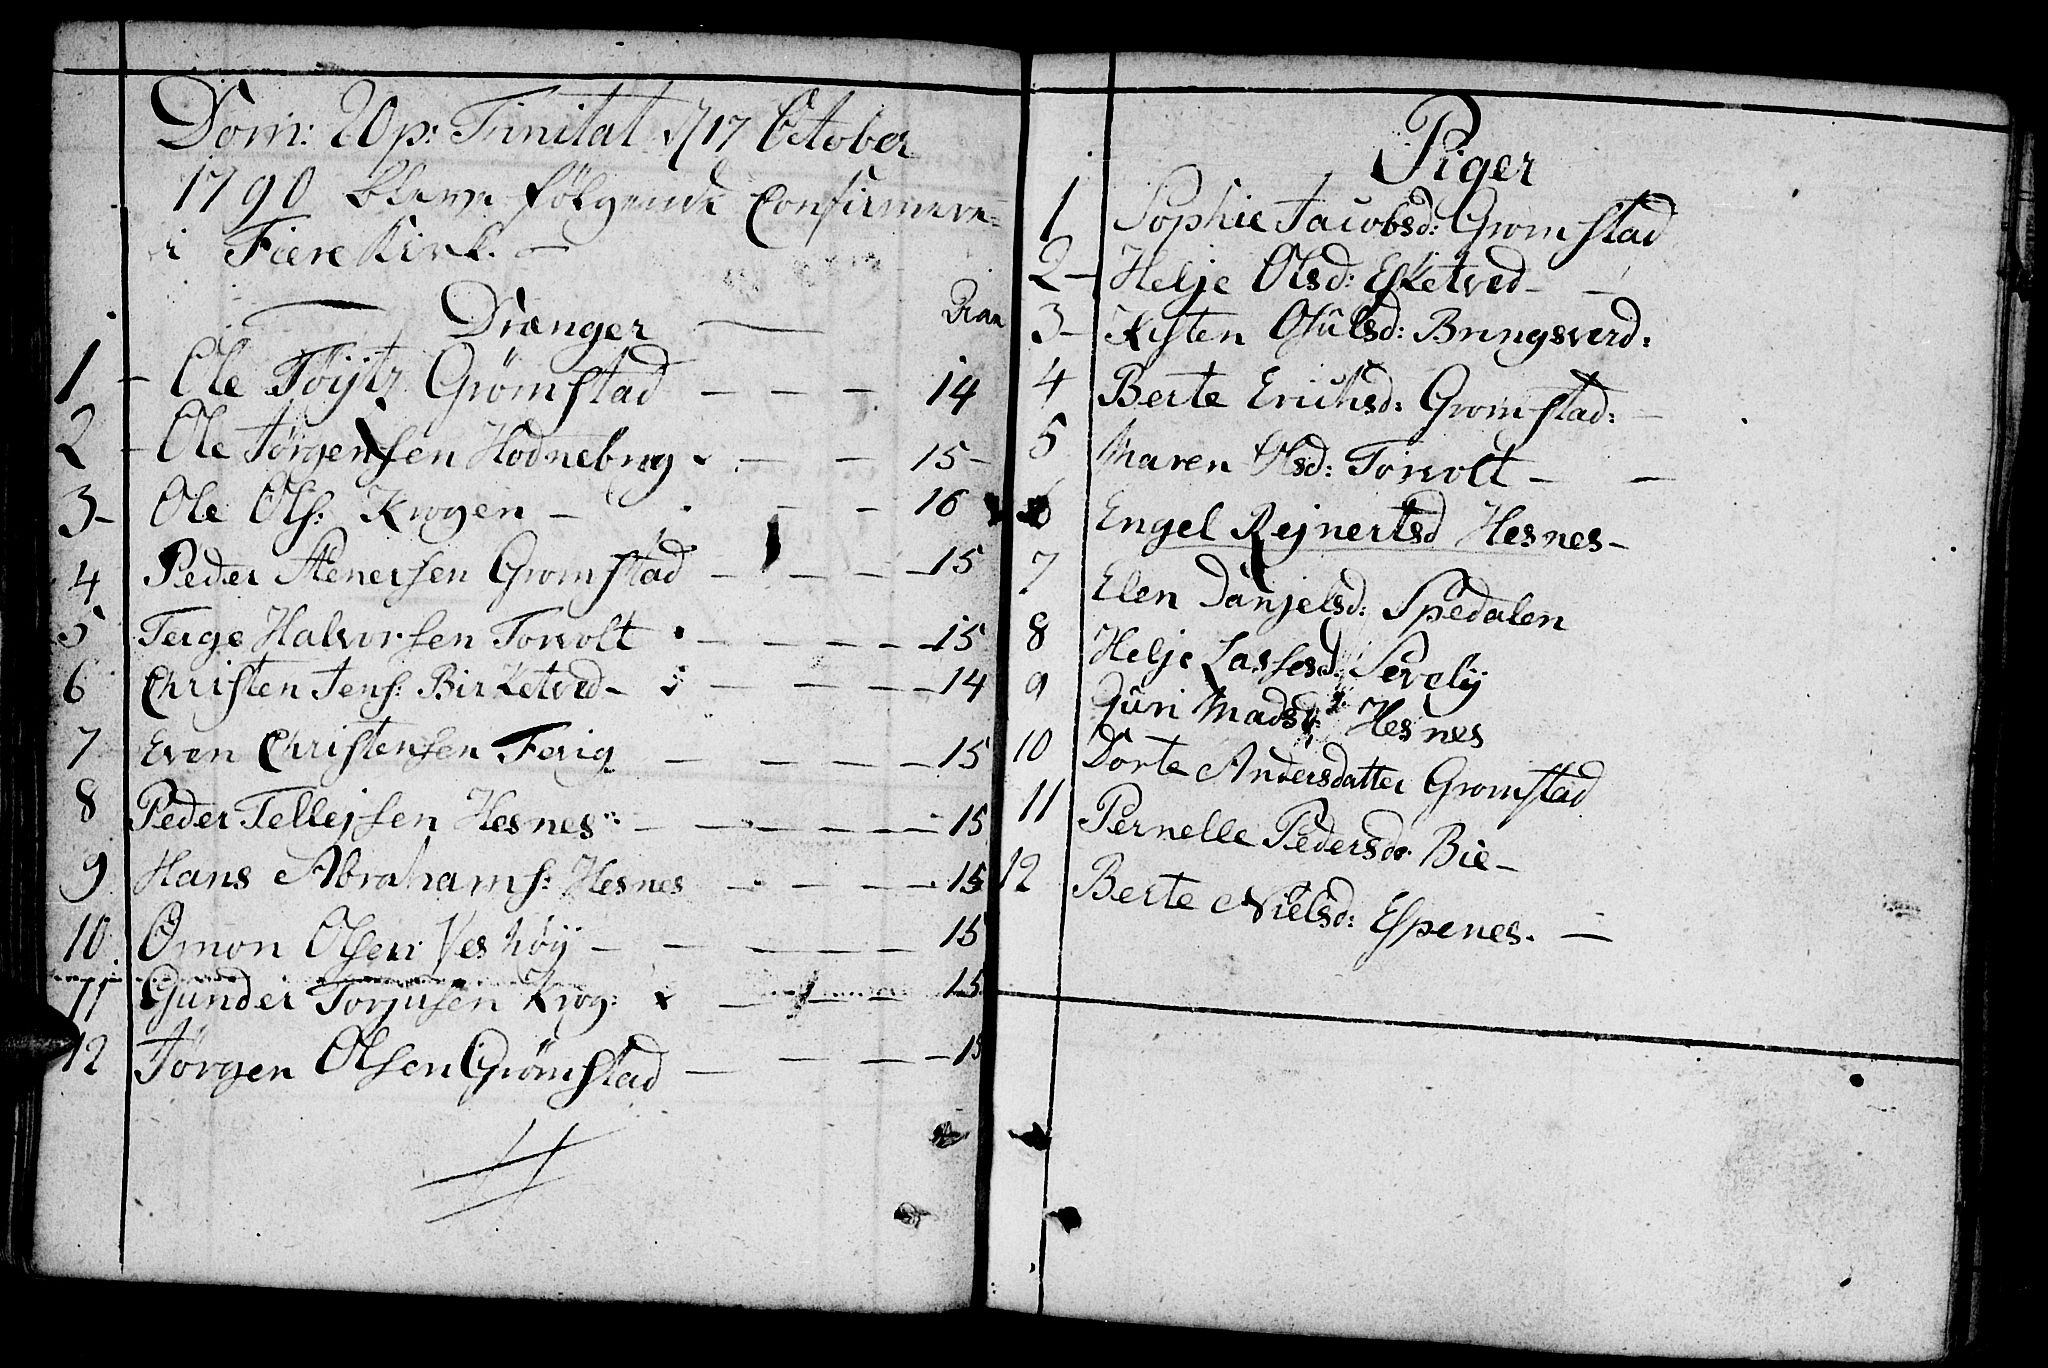 Dom: 20 p: Finitat 17 October
1790 bleve følgende Confirmere
i Fiere Kirk. —
Drænger
1 - Ole Grømstad - - - 14
2 - Ole Jørgensen Hodnebrog - - 15 -
3 - Ole Ols: Krogen - - - 16
4 Peder Stenersen Gromstad - - - - 15
5 Terge Halvorsen Torvolt - - - - 15
6 Christen Jens: Birketved - - - - - 14
7 Even Christensen Ferig - - - - 15
8 Peder Tellejsen Hesnes: - - - - - 15
9 Hans Abrahams: Hesnes - - - - 15
10 Omon Olsen Veshøÿ - - - - - 15
11 Gunder Torjusen Krog: - - - - 15
12 Jørgen Olsen Grømstad - - - - - 15
Piger
1 Sophie Jacobsd: Gromstad
2 - Helje Olsd: Esketved - -
3 - Kisten Osulsd: Bringsverd:
4 Berte Erichsd: Gromstad: -
5 Maren Olsd: Torvolt - -
6 Engel Rejnertsd Hesnes -
7 Elen Danjelsd: Spedalen
8 Helje Lassesd:
9 Guri Madsd: Hesnes
10 Dorte Andersdatter Gromstad
11 Pernelle Pedersd: Bie -
12 Berte Nielsd: Espenes. -